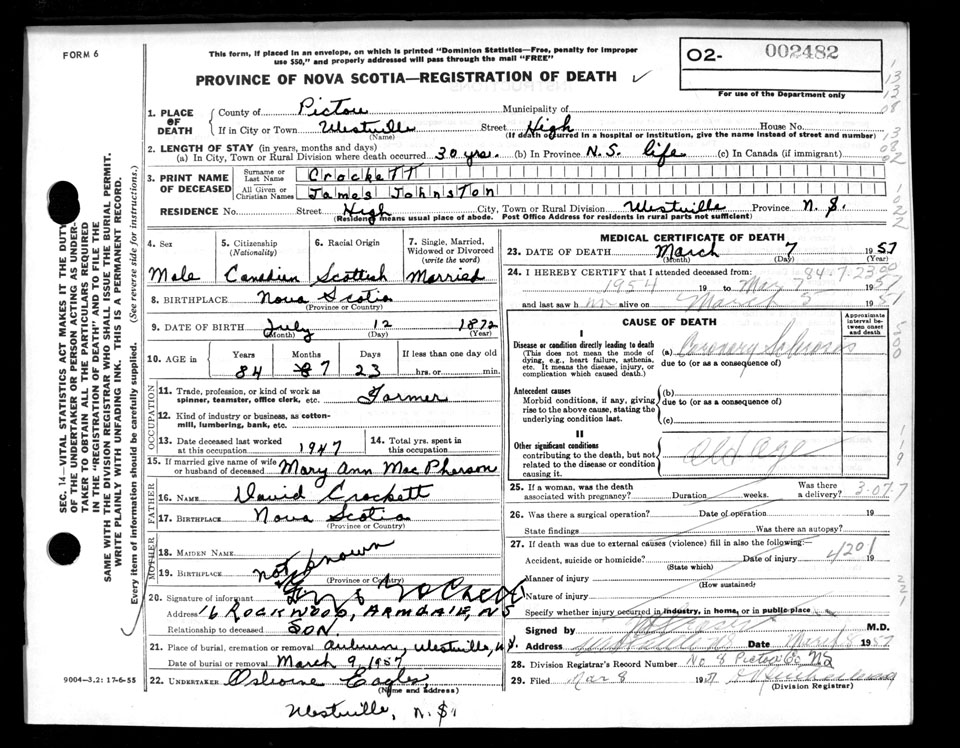 FORM 6
This form, if placed in an envelope, on which is printed "Dominion Statistics—Free, penalty for improper
use $50," and properly addressed will pass through the mail "FREE"
PROVINCE OF NOVA SCOTIA—REGISTRATION OF DEATH ✓
O2- 002482
For use of the Department only
SEC. 14—VITAL STATISTICS ACT MAKES IT THE DUTY
OF THE UNDERTAKER OR PERSON ACTING AS UNDER-
TAKER TO OBTAIN ALL THE PARTICULARS REQUIRED
IN THE "REGISTRATION OF DEATH" AND TO FILE THE
SAME WITH THE DIVISION REGISTRAR WHO SHALL ISSUE THE BURIAL PERMIT.
WRITE PLAINLY WITH UNFADING INK. THIS IS A PERMANENT RECORD.
Every item of information should be carefully supplied. (See reverse side for instructions.)
1. PLACE OF DEATH County of Pictou Municipality of
If in City or Town Westville Street High House No.
(Name) (If death occurred in a hospital or institution, give the name instead of street and number)
2. LENGTH OF STAY (in years, months and days)
(a) In City, Town or Rural Division where death occurred 30 yrs. (b) In Province N.S. life (c) In Canada (if immigrant)
3. PRINT NAME OF DECEASED Surname or Last Name Crockett
All Given or Christian Names James Johnston
RESIDENCE No. Street High City, Town or Rural Division Westville Province N.S.
(Residence means usual place of abode. Post Office Address for residents in rural parts not sufficient)
4. Sex 5. Citizenship (Nationality) 6. Racial Origin 7. Single, Married, Widowed or Divorced (write the word)
Male Canadian Scottish Married
8. BIRTHPLACE Nova Scotia
(Province or Country)
9. DATE OF BIRTH July 12 1872
(Month) (Day) (Year)
10. AGE in Years Months Days If less than one day old
84 7 23 hrs. or min.
OCCUPATION
11. Trade, profession, or kind of work as spinner, teamster, office clerk, etc. Farmer
12. Kind of industry or business, as cotton-mill, lumbering, bank, etc.
13. Date deceased last worked at this occupation 1947 14. Total yrs. spent in this occupation
15. If married give name of wife or husband of deceased Mary Ann MacPherson
FATHER
16. NAME David Crockett
17. BIRTHPLACE Nova Scotia
(Province or Country)
MOTHER
18. MAIDEN NAME
19. BIRTHPLACE not known
(Province or Country)
20. Signature of informant
Address 16 ROCKWOOD, ARMDALE, NS
Relationship to deceased SON.
21. Place of burial, cremation or removal Auburn, Westville, N.S.
Date of burial or removal March 9, 1957
22. UNDERTAKER Osborne Eagles,
(Name and address)
Westville, N.S.
9004—3.2: 17-6-55
MEDICAL CERTIFICATE OF DEATH
23. DATE OF DEATH March 7 1957
(Month) (Day) (Year)
24. I HEREBY CERTIFY that I attended deceased from:
84-7-23
1954 19 to Mar 7 1957
and last saw him alive on March 5 195
CAUSE OF DEATH
Approximate interval between onset and death
I
Disease or condition directly leading to death
(This does not mean the mode of dying, e.g., heart failure, asthenia, etc. It means the disease, injury, or complication which caused death.)
(a) Coronary Sclerosis
due to (or as a consequence of)
Antecedent causes
Morbid conditions, if any, giving rise to the above cause, stating the underlying condition last.
(b)
due to (or as a consequence of)
(c)
II
Other significant conditions
contributing to the death, but not related to the disease or condition causing it.
Old Age
25. If a woman, was the death associated with pregnancy? Duration weeks. Was there a delivery? 3-077
26. Was there a surgical operation? Date of operation 19
State findings Was there an autopsy?
27. If death was due to external causes (violence) fill in also the following:
Accident, suicide or homicide? Date of injury 19
(State which)
4201
Manner of injury
(How sustained)
Nature of injury
Specify whether injury occurred in industry, in home, or in public place
Signed by M.D.
Address Date March 8 1957
28. Division Registrar's Record Number No 8 Pictou Co NS
29. Filed Mar 8 1957
(Division Registrar)